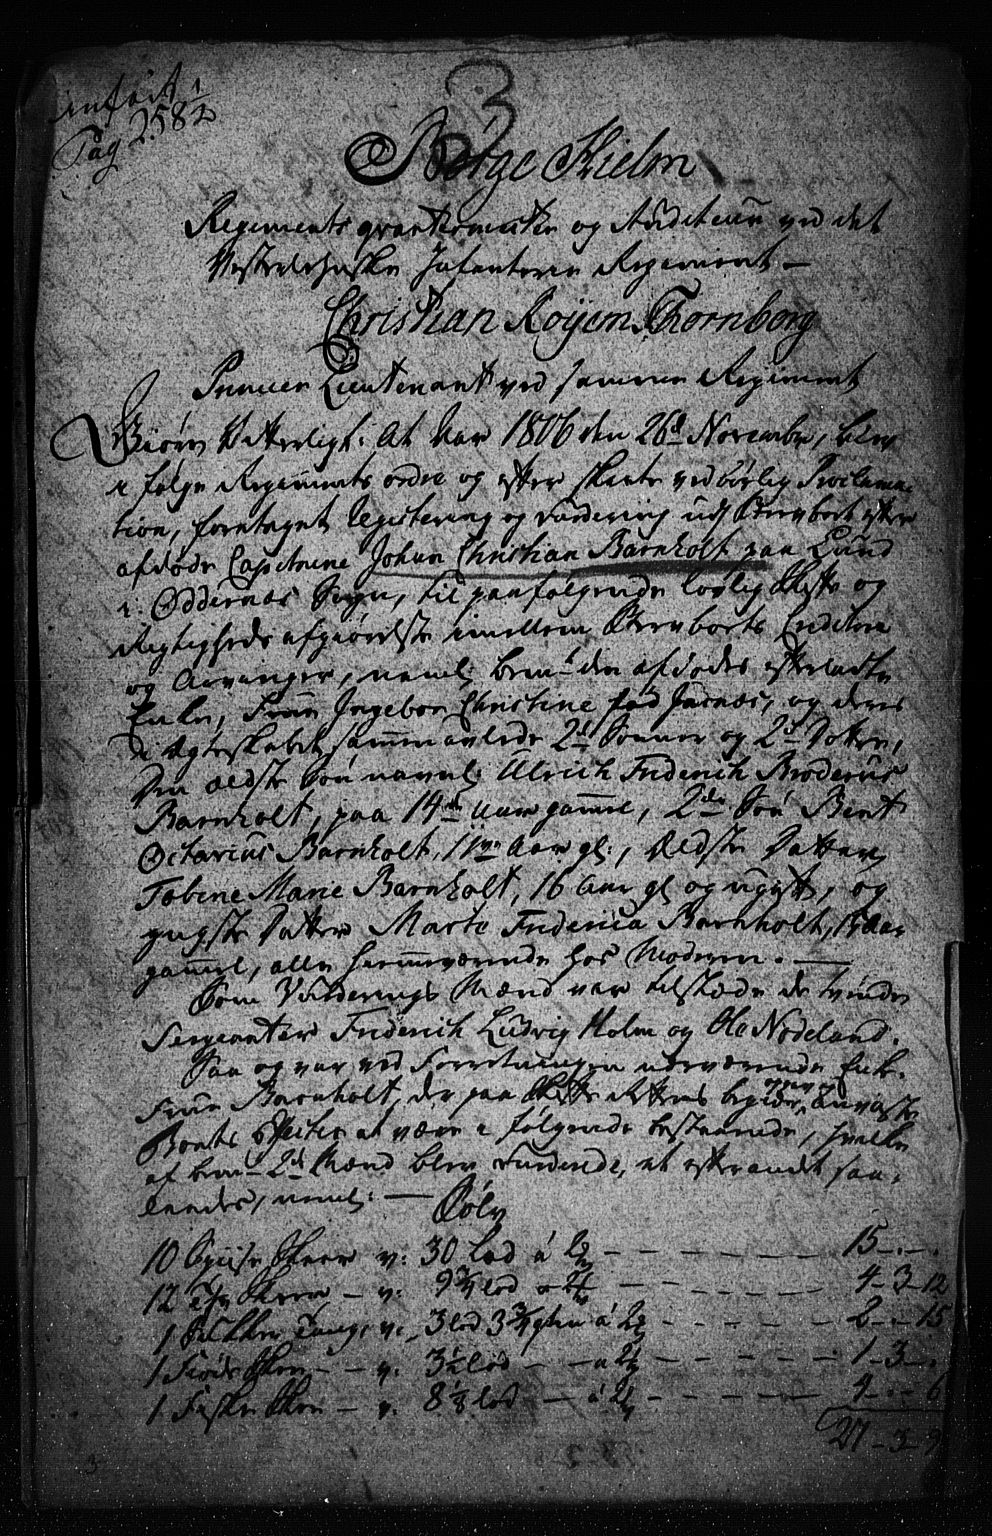 indført
Pag 258 1/2
3
Børge Hielm
Regiments qvarteermester og Auditeur ved det
Vesterlehnske Infanterie Regiment —
Christian Roÿem Thornborg
Premier Lieutenant ved samme Regiment
Giøre Vitterligt: At Aar 1806 den 26d November, blev
i følge Regiments ordre og efter skeete vedbørlig Proclama-
tion, foretaget Registering og Vurdering udj Sterboet efter
afdøde Capitaine Johan Christian Barnholt paa Lund
i Oddernæs Sogn, til paafølgende lovlig Skifte og
Rigtigheds afgiørelse imellem Sterboets Creditorer
og Arvinger, navnl: bem:te den afdødes efterladte
Enke, Frue Ingebor Christine fød Jacnæs, og deres
i Ægteskabet sammenavlede 2de Sønner og 2de Døttre,
Den ældste Søn navnl: Ulrich Friderich Broderus
Barnholt, paa 14 Aar gammel, 2den Søn Bent
Octavius Barnholt, 11 Aar gl:, Ældste Datter
Tobine Marie Barnholt, 16 Aar gl og ugift, og
yngste Datter Marte Friderica Barnholt, Aar
gammel, alle hiemmeværende hos Moderen. —
Som Vurderings Mænd var tilstæde de tvende
Sergeanter Friderich Ludvig Holm og Ole Nodeland.
Saa og var ved Forretningen nærværende Enke-
Frue Barnholt, der paa Skifte Rettens begiær, anviiste
Boets Effecter at være i følgende bestaaende, hvilke
af bem:te 2de Mænd blev Vurderede, at efterandet saa-
ledes, navnl: —
Sølv
10 Spiise Skeer v: 30 Lod á 2/2 — — — — — 15 — . — .
12 Thee Skeer — v: 9 3/4 lod — — — 4 — 3 — 12
1 Sukker Tang, v: 3 lod 3 3/4 qtin á — — — — 2 — . — 15
1 Fløde Skee — — v: 3 1/2 lod — — á — — — — 1 — 3 — .
1 Fiske Skee — v: 8 1/8 lod — á — — — — 4 — . — 6
27 — 3 — 9